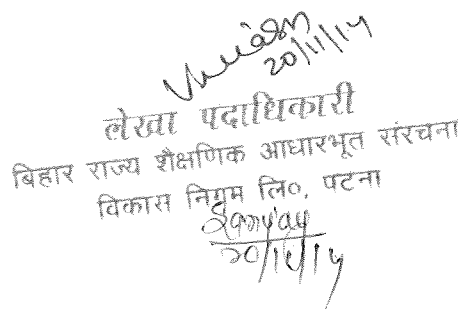 20/11/14
लेखा पदाधिकारी
बिहार राज्य शैक्षणिक आधारभूत संरचना
विकास निगम लि०, पटना
Sanjay
20/11/14